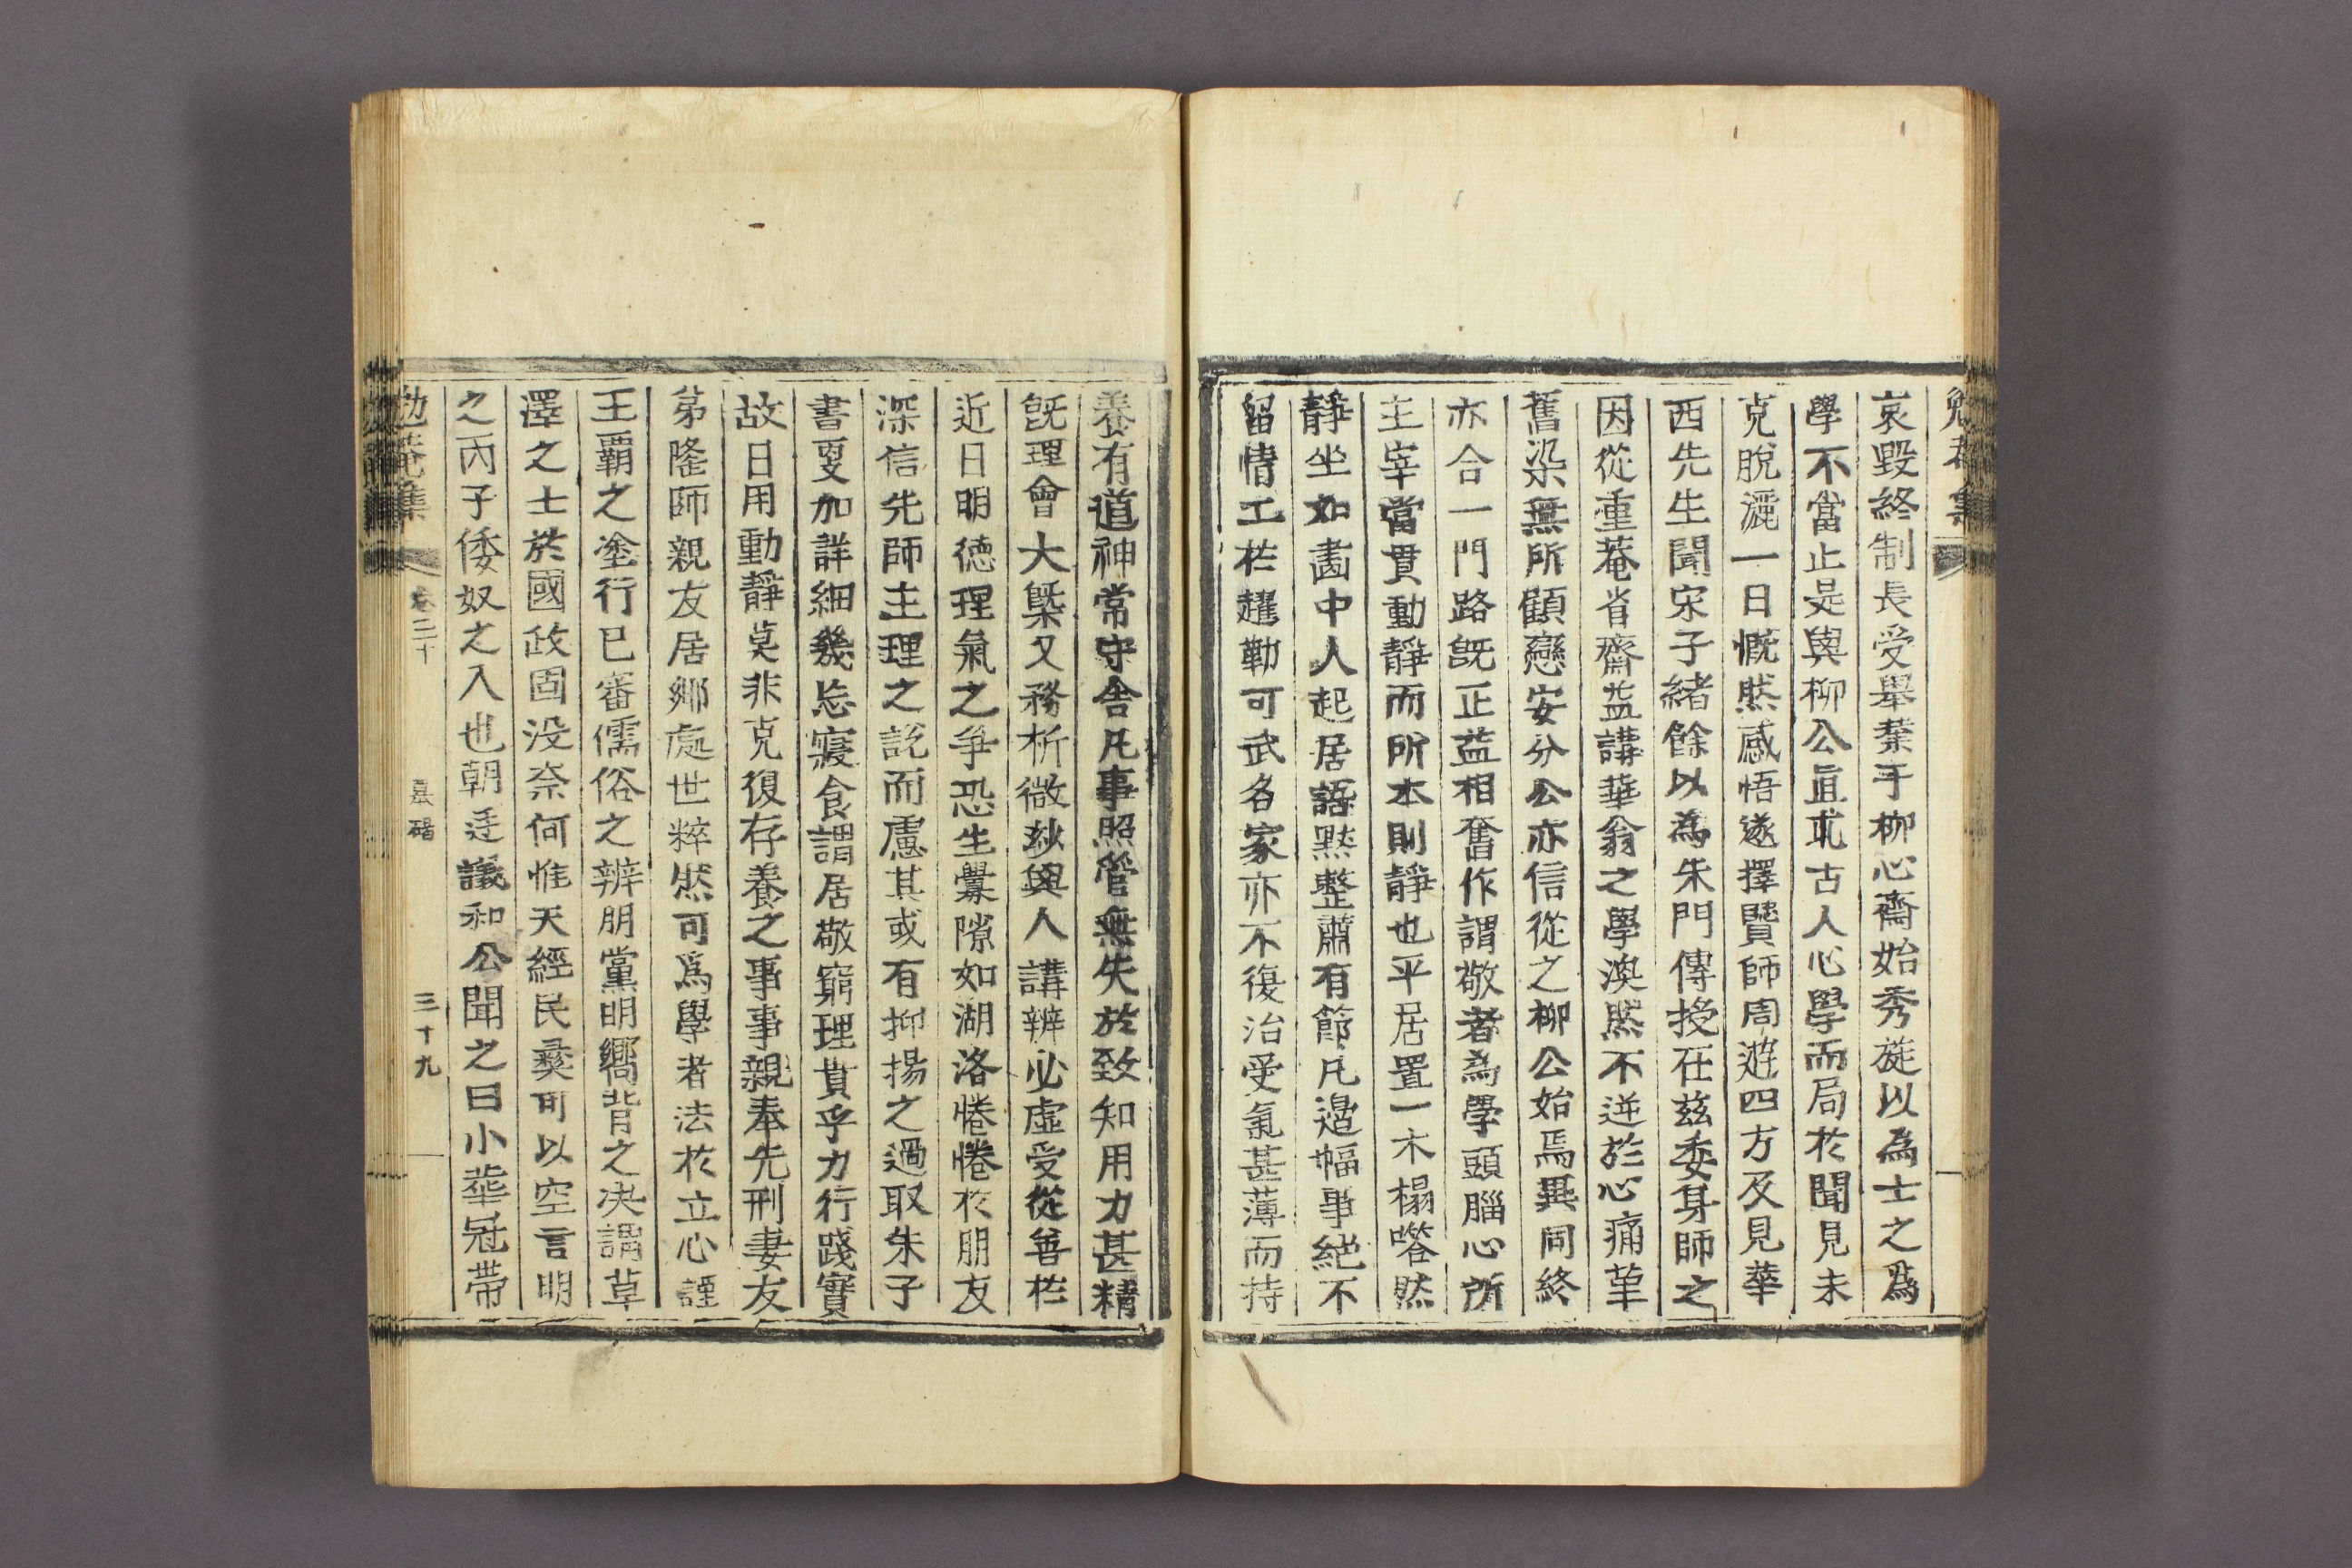 勉菴集
哀毀終制長受舉業于柳心齋始秀旋以為士之爲
學不當止是與柳公直求古人心學而局於聞見未
克脫灑一日慨然感悟遂擇賢師周遊四方及見華
西先生聞宋子緖餘以為朱門傳授在兹委身師之
因從重菴省齋益講華翁之學渙然不逆於心痛革
舊染無所顧戀安分公亦信從之柳公始焉異同終
亦合一門路旣正益相奮作謂敬者為學頭腦心所
主宰當貫動靜而所本則靜也平居置一木榻嗒然
靜坐如畫中人起居語默整肅有節凡邊幅事絶不
留情工於趯勒可武名家亦不復治受氣甚薄而持
養有道神常守舍凡事照管無失於致知用力甚精
旣理會大槩又務析微玅與人講辨必虛受從善於
近日明德理氣之爭恐生釁隙如湖洛惓惓於朋友
深信先師主理之說而慮其或有抑揚之過取朱子
書更加詳細幾忘寢食謂居敬窮理貴乎力行踐實
故日用動靜莫非克復存養之事事親奉先刑妻友
弟隆師親友居鄉處世粹然可爲學者法於立心謹
王霸之塗行已審儒俗之辨朋黨明嚮背之决謂草
澤之士於國政固没奈何惟天經民彛可以空言明
之丙子倭奴之入也朝廷議和公聞之曰小華冠帶
勉菴集 卷二十 墓碣 三十九